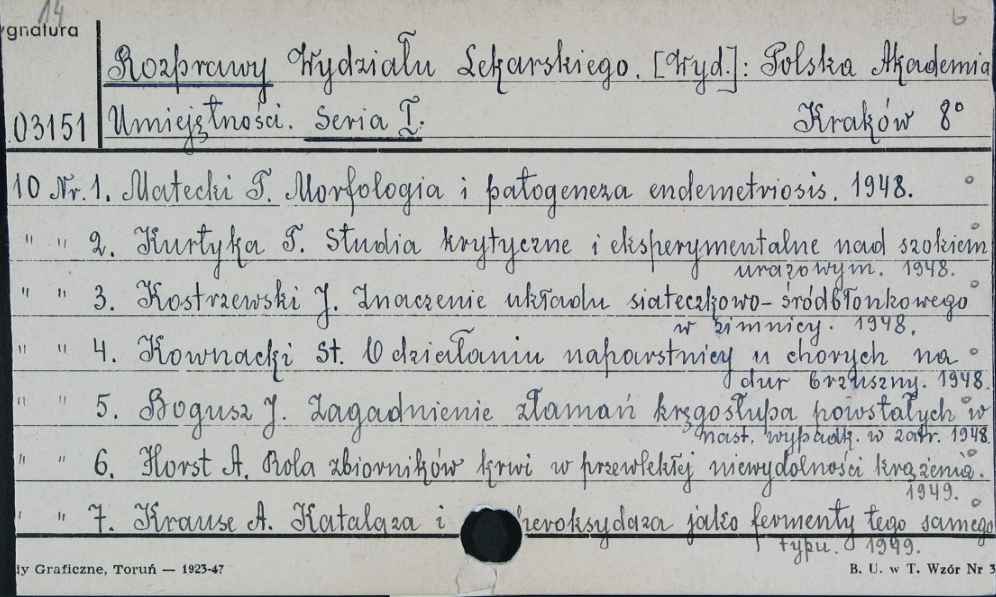 14 6
ygnatura
Rozprawy Wydziału Lekarskiego. [Wyd.]: Polska Akademia
03151 Umiejętności. Seria I. Kraków 8°
10 Nr. 1. Małecki T. Morfologia i patogeneza endemetriosis. 1948.
" " 2. Kurtyka T. Studia krytyczne i eksperymentalne nad szokiem
urazowym. 1948.
" " 3. Kostrzewski J. Znaczenie układu siateczkowo-śródbłonkowego
w zimnicy. 1948.
" " 4. Kownacki St. O działaniu naparstnicy u chorych na
dur brzuszny. 1948.
" " 5. Bogusz J. Zagadnienie złamań kręgosłupa powstałych w
nast. wypadk. w zatr. 1948.
" " 6. Horst A. Rola zbiorników krwi w przewlekłej niewydolności krążenia.
1949.
" " 7. Krause A. Katalaza i peroksydaza jako fermenty tego samego
typu. 1949.
dy Graficzne, Toruń — 1923-47 B. U. w T. Wzór Nr 3